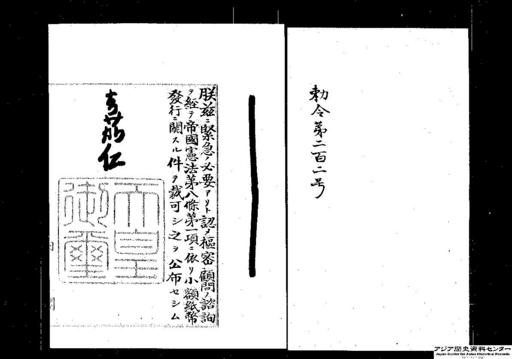 勅令第二百二号
朕茲ニ緊急ノ必要アリト認メ樞密顧問ノ諮詢
ヲ經テ帝國憲法第八條第一項ニ依リ小額紙幣
發行ニ關スル件ヲ裁可シ之ヲ公布セシム
嘉仁
天皇
御璽
アジア歴史資料センター
Japan Center for Asian Historical Records